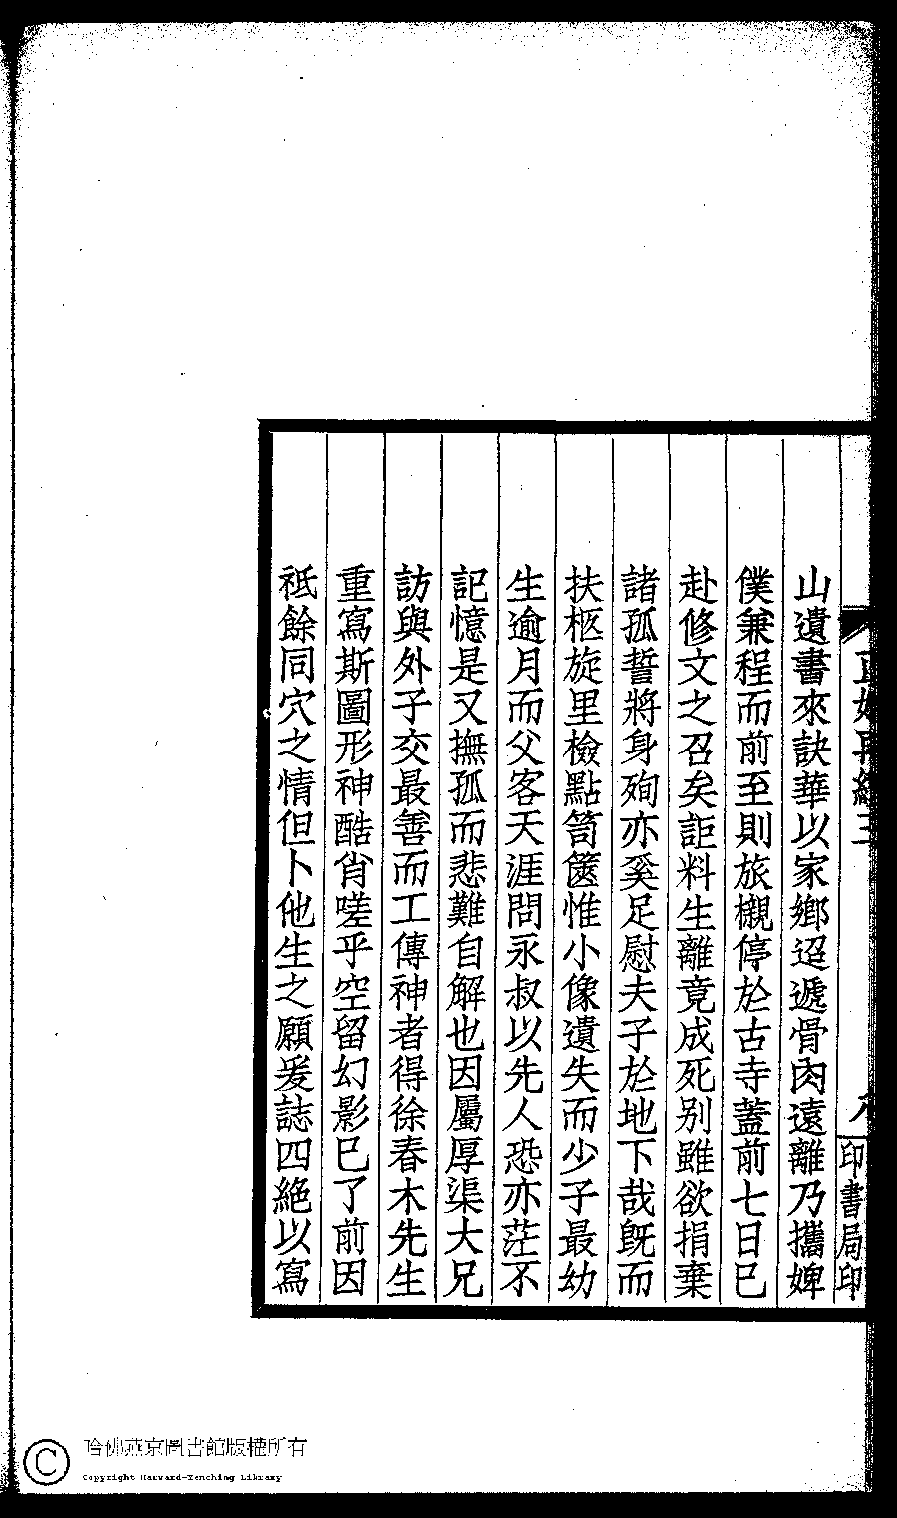 山遺書來訣華以家鄉迢遞骨肉遠離乃攜婢
僕兼程而前至則旅櫬停於古寺蓋前七日已
赴修文之召矣詎料生離竟成死別雖欲捐棄
諸孤誓將身殉亦奚足慰夫子於地下哉旣而
扶柩旋里檢點笥篋惟小像遺失而少子最幼
生逾月而父客天涯問永叔以先人恐亦茫不
記憶是又撫孤而悲難自解也因屬厚渠大兄
訪與外子交最善而工傳神者得徐春木先生
重寫斯圖形神酷肖嗟乎空留幻影已了前因
祗餘同穴之情但卜他生之願爰誌四絶以寫
印書局印
哈佛燕京圖書館版權所有
Copyright Harvard-Yenching Library